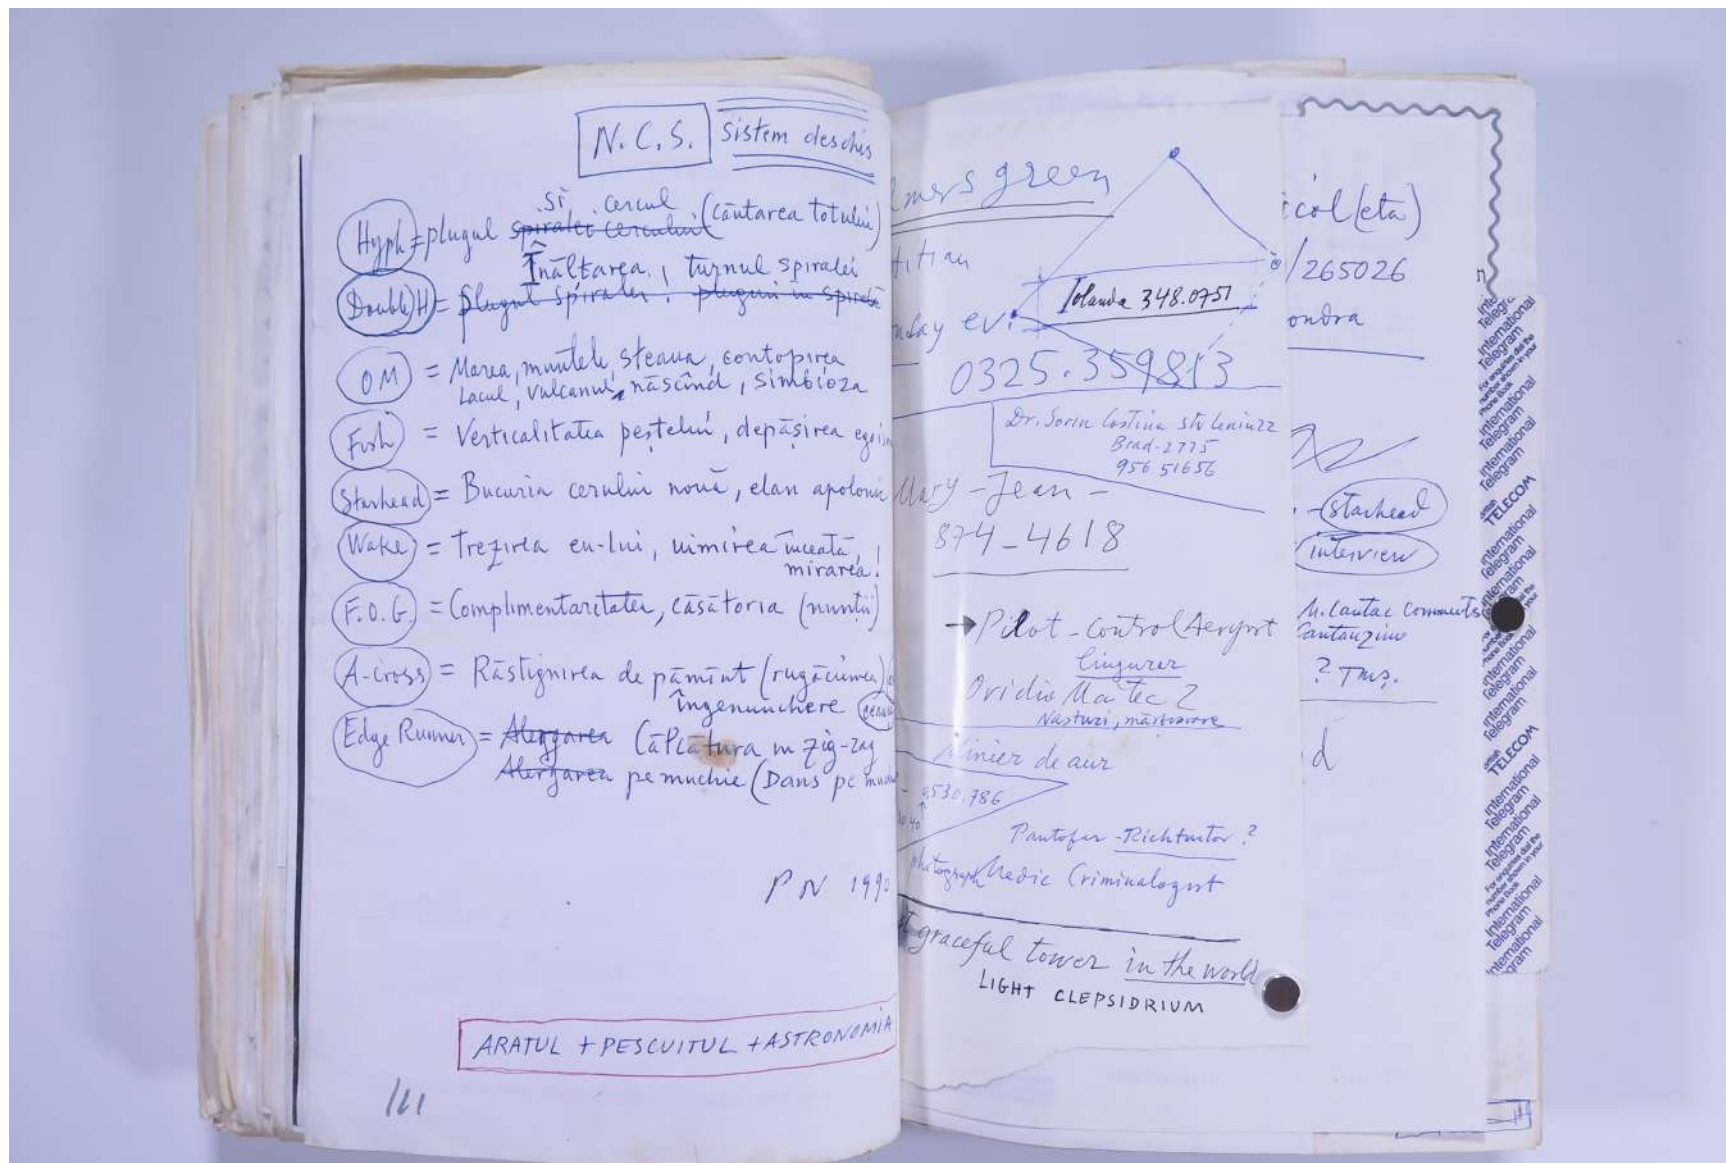 N.C.S. sistem deschis
și cercul
Hyph = plugul spiralei cercului (căutarea totului)
Înălțarea, turnul spiralei
Double H = plugul spiralei! pluguri în spirală
OM = Marea, muntele, steaua, contopirea
Lacul, vulcanul, născînd, simbioza
Fish = Verticalitatea peștelui, depășirea egois
Starhead = Bucuria cerului nouă, elan apolinic
Wake = Trezirea eu-lui, uimirea înceată,
mirarea!
F.O.G. = Complimentaritatea, căsătoria (nunții)
A-Cross = Răstignirea de pămînt (rugăciunea)
îngenunchere
Edge Runner = Alergarea Călcătura în zig-zag
Alergarea pe muchie (Dans pe
PN 1990
ARATUL + PESCUITUL + ASTRONOMIA
111
lmers green
titian
Iolanda 348.0751
day ev.
0325.359813
Dr. Sorin Costina str Lenin 22
Brad - 2775
956 51656
Mary - Jean -
874-4618
→ Pilot - Control Aeroport
Lingurer
Ovidiu Maitec 2
Nasturi, mărțișoare
Minier de aur
530.786
Pantofar - Richtuitor ?
photograph Medic Criminalogist
st graceful tower in the world
LIGHT CLEPSIDRIUM
icol(eta)
/265026
ondra
- starhead
interview
Cantauzino
? Tmș.
d
International
Telegram
British
TELECOM
International
Telegram
For enquiries dial the
number shown in your
Phone Book
International
Telegram
British
TELECOM
International
Telegram